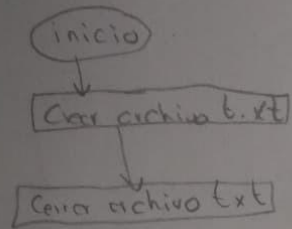 inicio
Crear archivo t.xt
Cerrar archivo txt